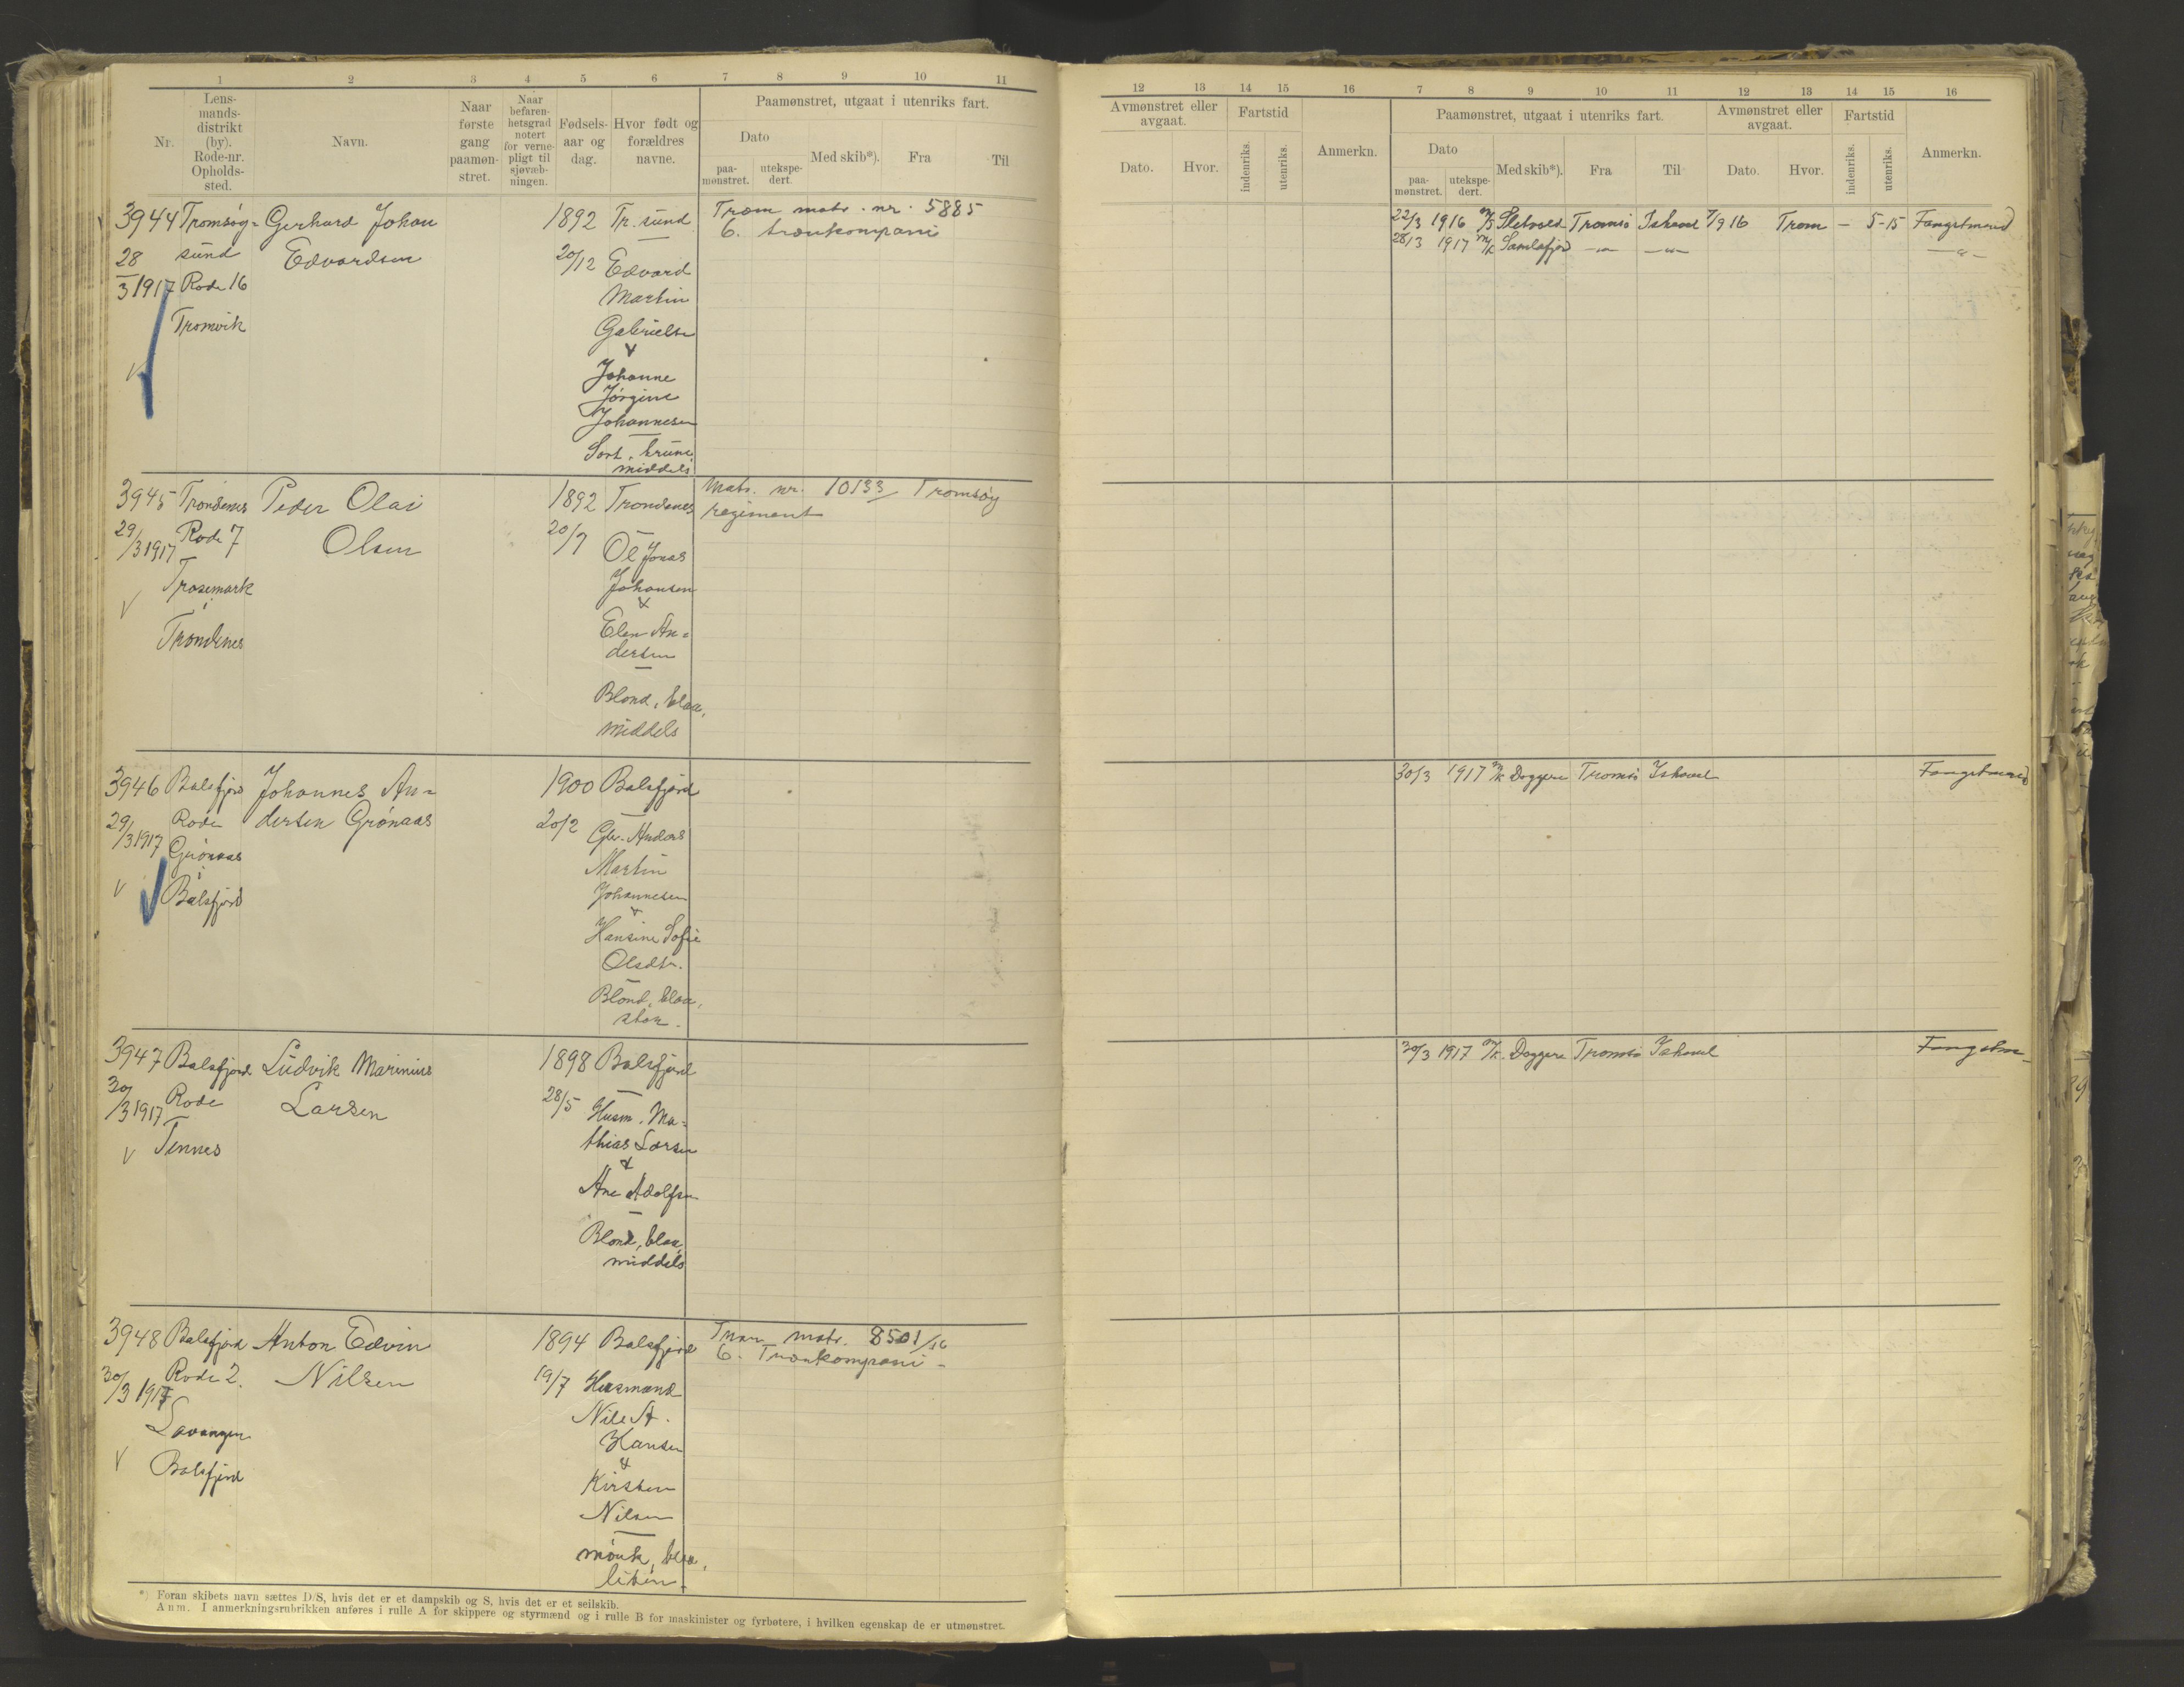 1 2 3 4 5 6 7 8 9 10 11
Nr.
Lens-
mands-
distrikt
(by).
Rode-nr.
Opholds-
sted.
Navn.
Naar
første
gang
paamøn-
stret.
Naar
befaren-
hetsgrad
notert
for verne-
pligt til
sjøvæb-
ningen.
Fødsels-
aar og
dag.
Hvor født og
forældres
navne.
Paamønstret, utgaat i utenriks fart.
Dato
paa-
mønstret.
utekspe-
dert.
Med skib*).
Fra
Til
3944 Tromsøy- Gerhard Johan 1892 Tr. sund Trom matr. nr. 5885
28 sund Edvardsen 20/12 Edvard 6. trænkompani
3 1917 Rode 16 Martin
Tromvik Gabrielsen
&
Johanne
Jørgine
Johannesen
Sort, brune,
middels
3945 Trondenes Peder Olai 1892 Trondenes Matr. nr. 10133 Tromsøy
29/3 1917 Rode 7 Olsen 20/7 regiment
Ole Jonas
Johansen
Trasemark &
i Elen An-
Trondenes dersen
Blond, blaa,
middels
3946 Balsfjord Johannes An- 1900 Balsfjord
29/3 1917 Rode dersen Grønaas 20/2 Gbr. Anders
Grønaas Martin
i Johannesen
Balsfjord &
Hansine Sofie
Olsdtr.
Blond, blaa,
stor.
3947 Balsfjord Ludvik Marinius 1898 Balsfjord
30/3 1917 Rode Larsen 28/5 Husm. Ma-
Tennes thias Larsen
&
Ane Adolfsen
Blond, blaa,
middels
3948 Balsfjord Anton Edvin 1894 Balsfjord matr. 8501/16
30/3 1917 Rode 2. Nilsen 19/7 Husmand 6. Trænkompani -
Lavangen Nils A.
Balsfjord Hansen
&
Kirsten
Nilsen
mørk, blaa,
liten.
*) Foran skibets navn sættes D/S, hvis det er et dampskib og S, hvis det er et seilskib.
Anm. I anmerkningsrubrikken anføres i rulle A for skippere og styrmænd og i rulle B for maskinister og fyrbøtere, i hvilken egenskap de er utmønstret.
12 13 14 15 16 7 8 9 10 11 12 13 14 15 16
Avmønstret eller
avgaat.
Dato.
Hvor.
Fartstid
indenriks.
utenriks.
Anmerkn.
Paamønstret, utgaat i utenriks fart.
Dato
paa-
mønstret.
utekspe-
dert.
Med skib*).
Fra
Til
Avmønstret eller
avgaat.
Dato.
Hvor.
Fartstid
indenriks.
utenriks.
Anmerkn.
22/3 1916 M/S Sletvold Tromsø Ishavet 7/9 16 Trom - 5-15 Fangstmand
28/3 1917 M/K Samlafjord -"- -"- -"-
30/3 1917 M/K Doggeren Tromsø Ishavet Fangstmand
30/3 1917 M/K. Doggeren Tromsø Ishavet Fangstm-